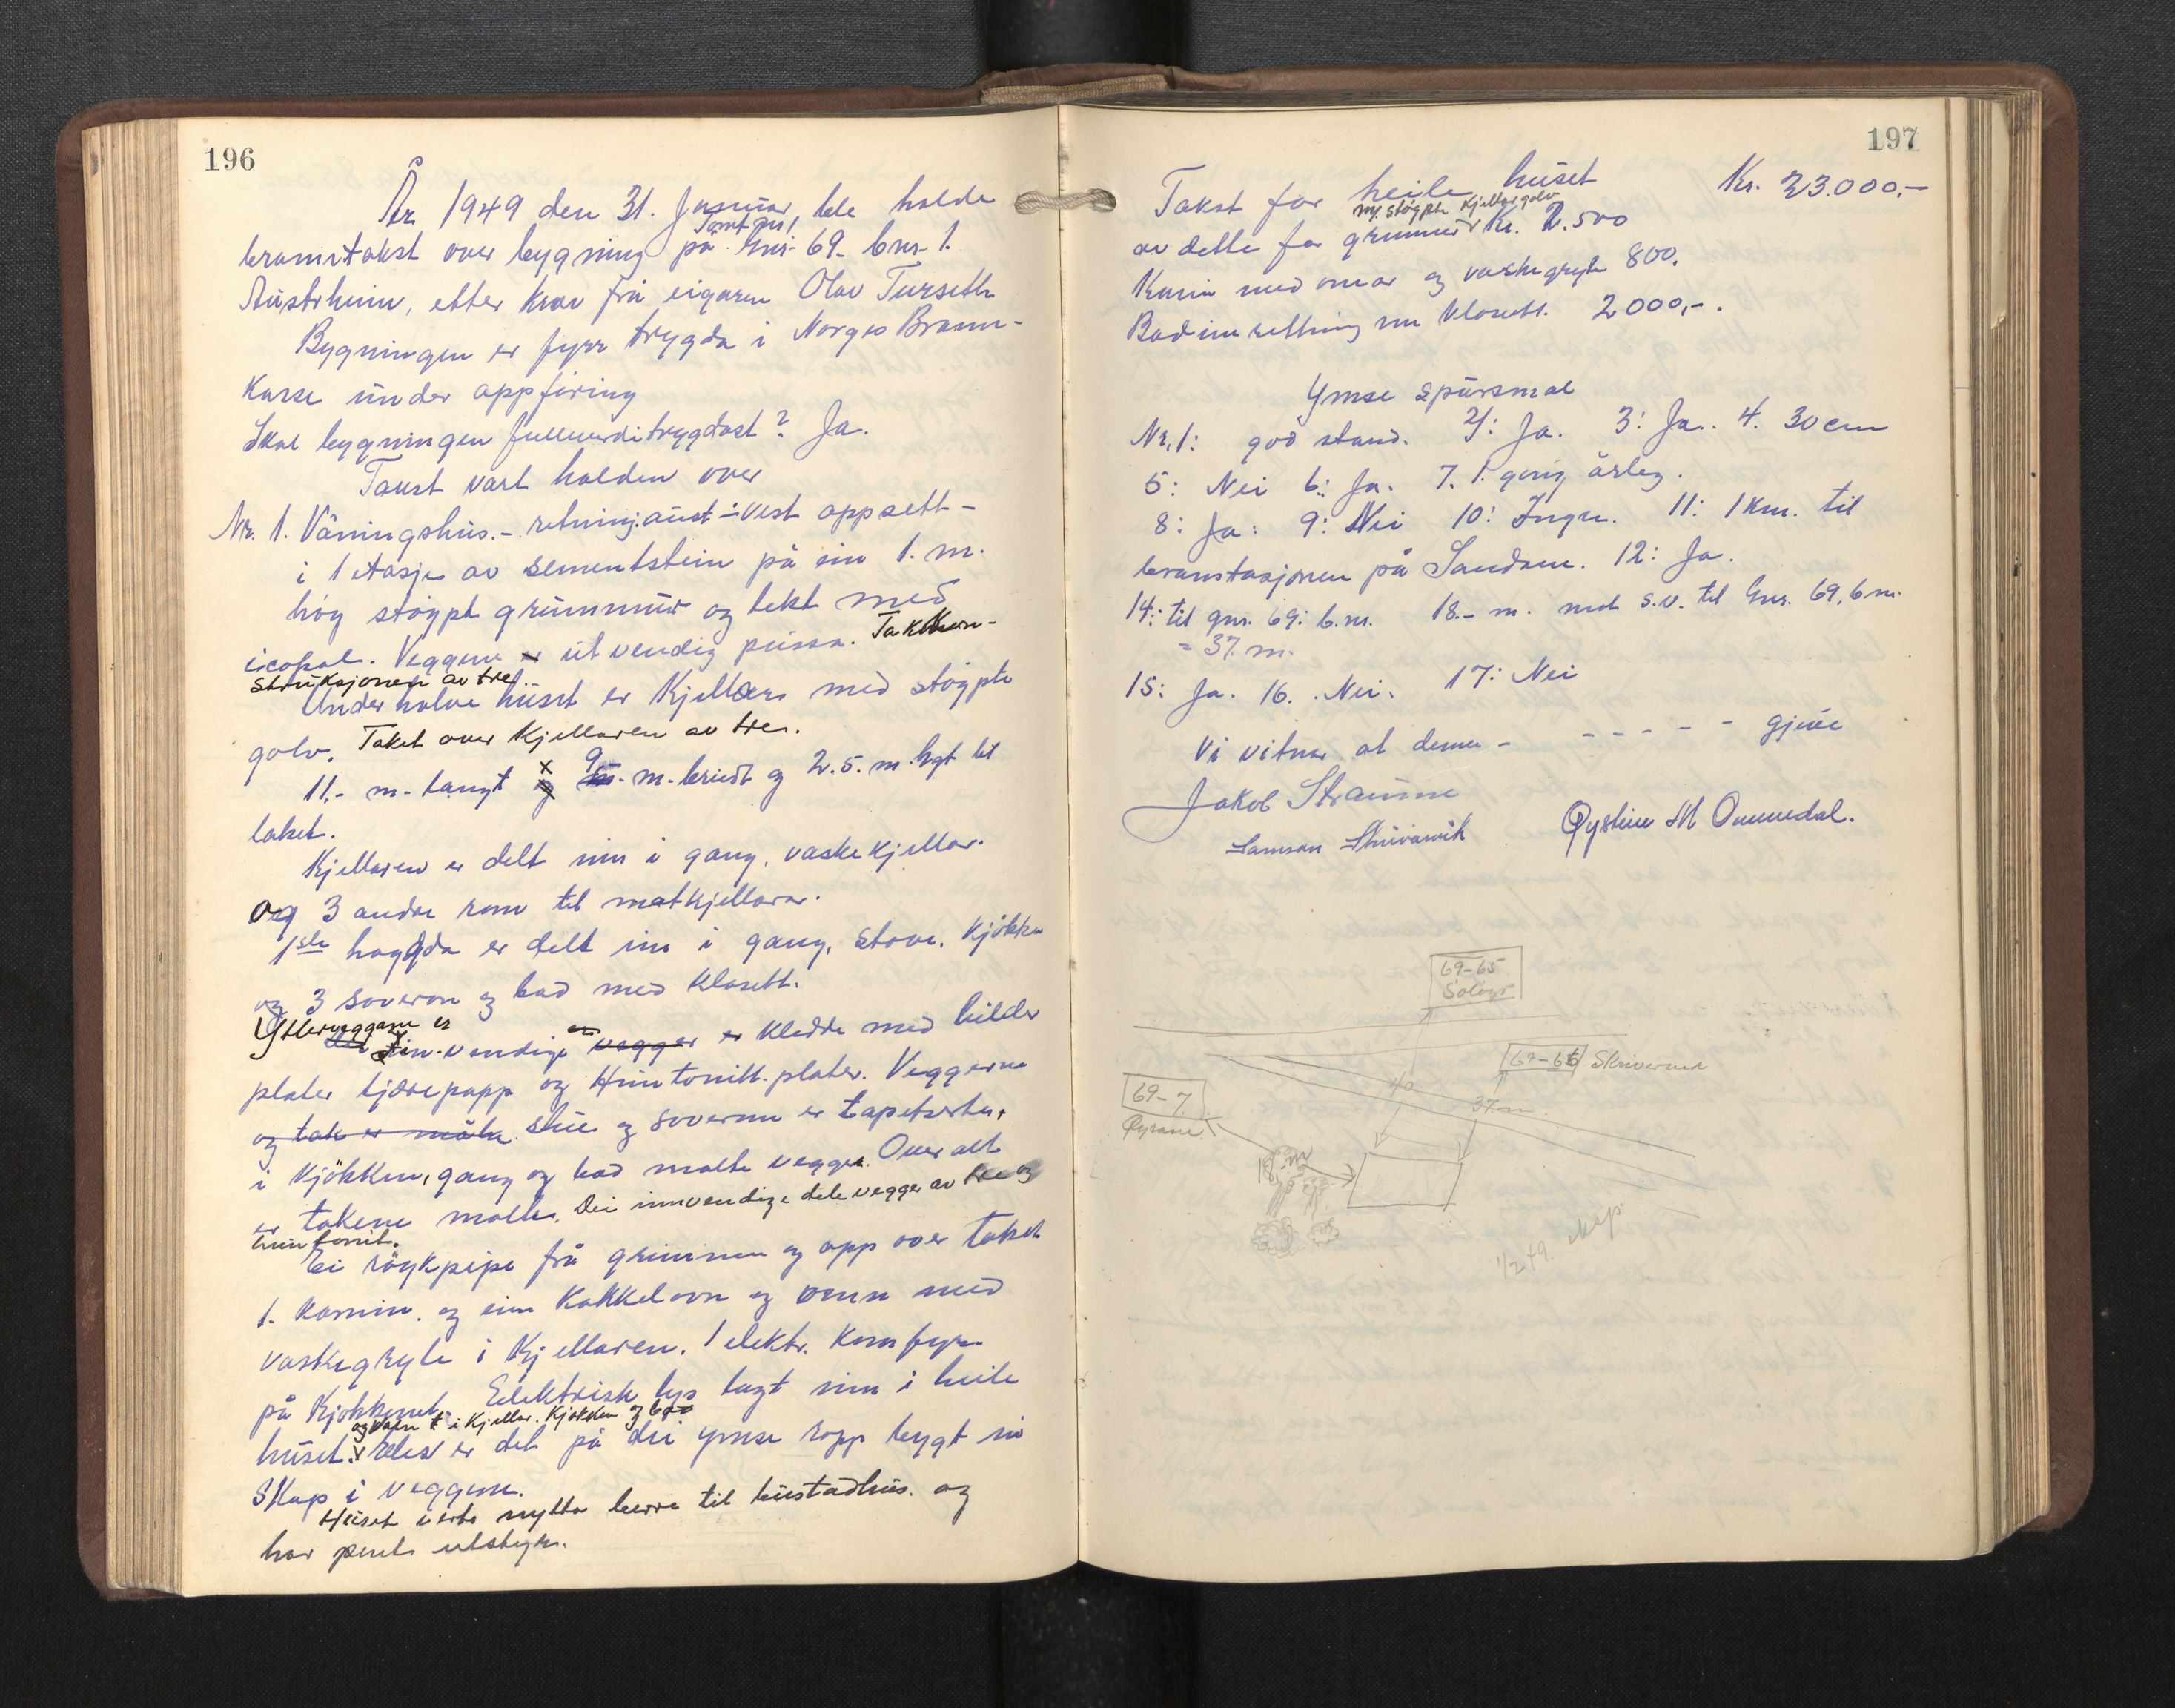 196
År 1949 den 31. Januar, ble holde
Tomt av
branntakst over bygning på Gnr. 69. bnr. 1.
Austrheim, etter krav frå eigaren Olav Turseth
Bygningen er fyrr trygda i Norges Brann-
kasse under oppföring
Skal bygningen fullverditrygdast? Ja.
Takst vart halden over
Nr. 1. Våningshus. - retning: aust - vest oppsett -
i 1 etasje av sementstein på ein 1. m.
höy stöypt grunnmur og tekt med
icopal. Veggene er utvendig pussa. Takkon-
struksjonen av tre.
Under halve huset er Kjellars med stöypte
golv. Taket over Kjellaren av tre.
11.- m. langt x og 9 m. breidt og 2.5. m. högt til
taket.
Kjellaren er delt inn i gang, vaskekjellar.
og 3 andre rom til matkjellarar.
1ste högda er delt inn i gang, stove, kjökken
og 3 soverom og bad med klosett.
Ytterveggane er
innvendige vegger er kledde med bilder
plater tjærepapp og Huntonitt. plater. Veggerne
og tak er måla stue og soverom er tapetserte,
i kjökken, gang og bad malte vegger. Over alt
er takene malte. Dei innvendige dele vegger av tre og
huntonit.
Ei röykpipe frå grunnen og opp over taket
1. kamin. og ein Kakkelovn og omn med
vaskegryte i Kjellaren. 1 elektr. komfyr
på Kjökkenet. Eelektrisk lys lagt inn i heile
og vatn i Kjellar. Kjökken og bad
huset. v elles er det på dei ymse romm bygt inn
Skap i veggene.
Huset verte nytta berre til bustadhus. og
har pent utstyr.
197
Takst for heile huset Kr. 23.000,-
m/ stöypte Kjellargolv
av dette for grunnmur Kr. 2.500
Kamin med omnar og vaskegryte 800.
Badinnretning m klosett. 2000,-.
Ymse spursmål
Nr. 1: god stand. 2/: Ja. 3: Ja.. 4. 30 cm
5: Nei 6: Ja. 7. 1. gong årleg.
8: Ja: 9: Nei 10: Ingen. 11: 1 km. til
branstasjonen på Sandane. 12: Ja.
14: til gnr. 69: b.nr. 18.- m. mot s.v. til Gnr. 69, b nr.
= 37. m.
15: Ja. 16. Nei. 17: Nei
Vi vitnar at denne - - - - - - gjeve
Jakob Straume
Samson Skrivarvik Øystein M Ommedal.
69-65
Soløyr
69-66 Skrivervik
69-7
Øyrane
40
37. m
18. m
1/2 49.